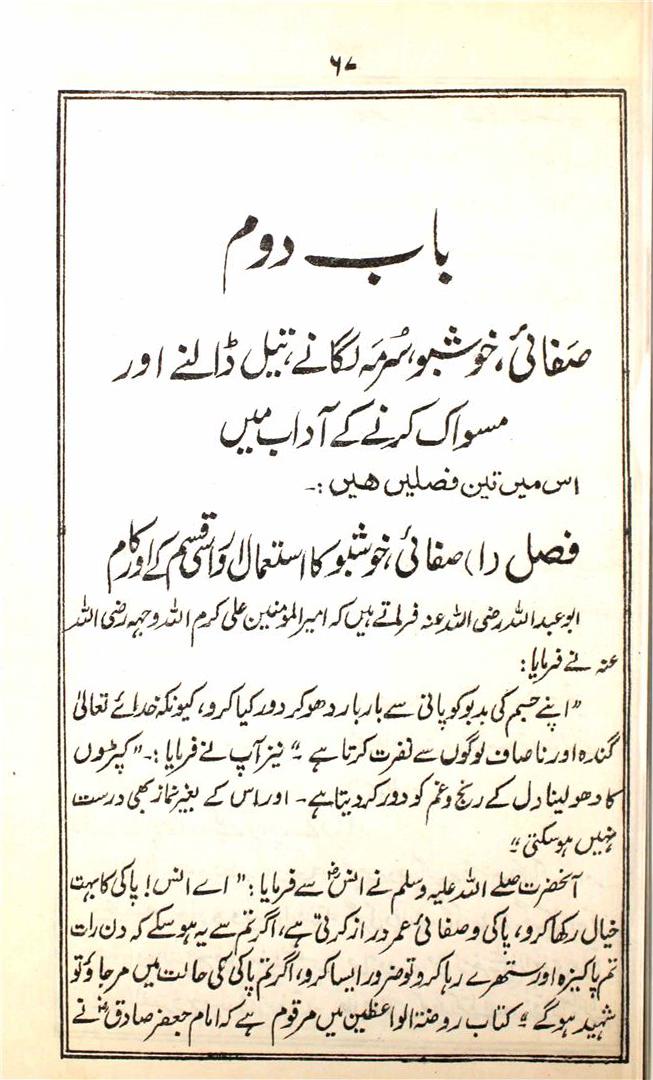 ۶۷
باب دوم
صفائی، خوشبو، سُرمہ لگانے، تیل ڈالنے اور
مسواک کرنے کے آداب میں
اس میں تین فصلیں ھیں :۔
فصل (۱) صفائی، خوشبو کا استعمال اور اسی قسم کے اور کام
ابو عبداللہ رضی اللہ عنہ فرماتے ہیں کہ امیرالمؤمنین علی کرم اللہ وجہہ رضی اللہ
عنہ نے فرمایا :
”اپنے جسم کی بدبو کو پانی سے بار بار دھو کر دور کیا کرو، کیونکہ خدائے تعالیٰ
گندہ اور ناصاف لوگوں سے نفرت کرتا ہے ۔“ نیز آپ نے فرمایا :۔ ”کپڑوں
کا دھو لینا دل کے رنج و غم کو دور کر دیتا ہے۔ اور اس کے بغیر نماز بھی درست
نہیں ہو سکتی“
آنحضرت صلے اللہ علیہ وسلم نے انسؓ سے فرمایا : ”اے انس! پاکی کا بہت
خیال رکھا کرو، پاکی و صفائی عمر دراز کرتی ہے، اگر تم سے یہ ہو سکے کہ دن رات
تم پاکیزہ اور ستھرے رہا کرو تو ضرور ایسا کرو، اگر تم پاکی کی حالت میں مر جاؤ تو
شہید ہو گے“ کتاب روضۃ الواعظین میں مرقوم ہے کہ امام جعفر صادقؓ نے